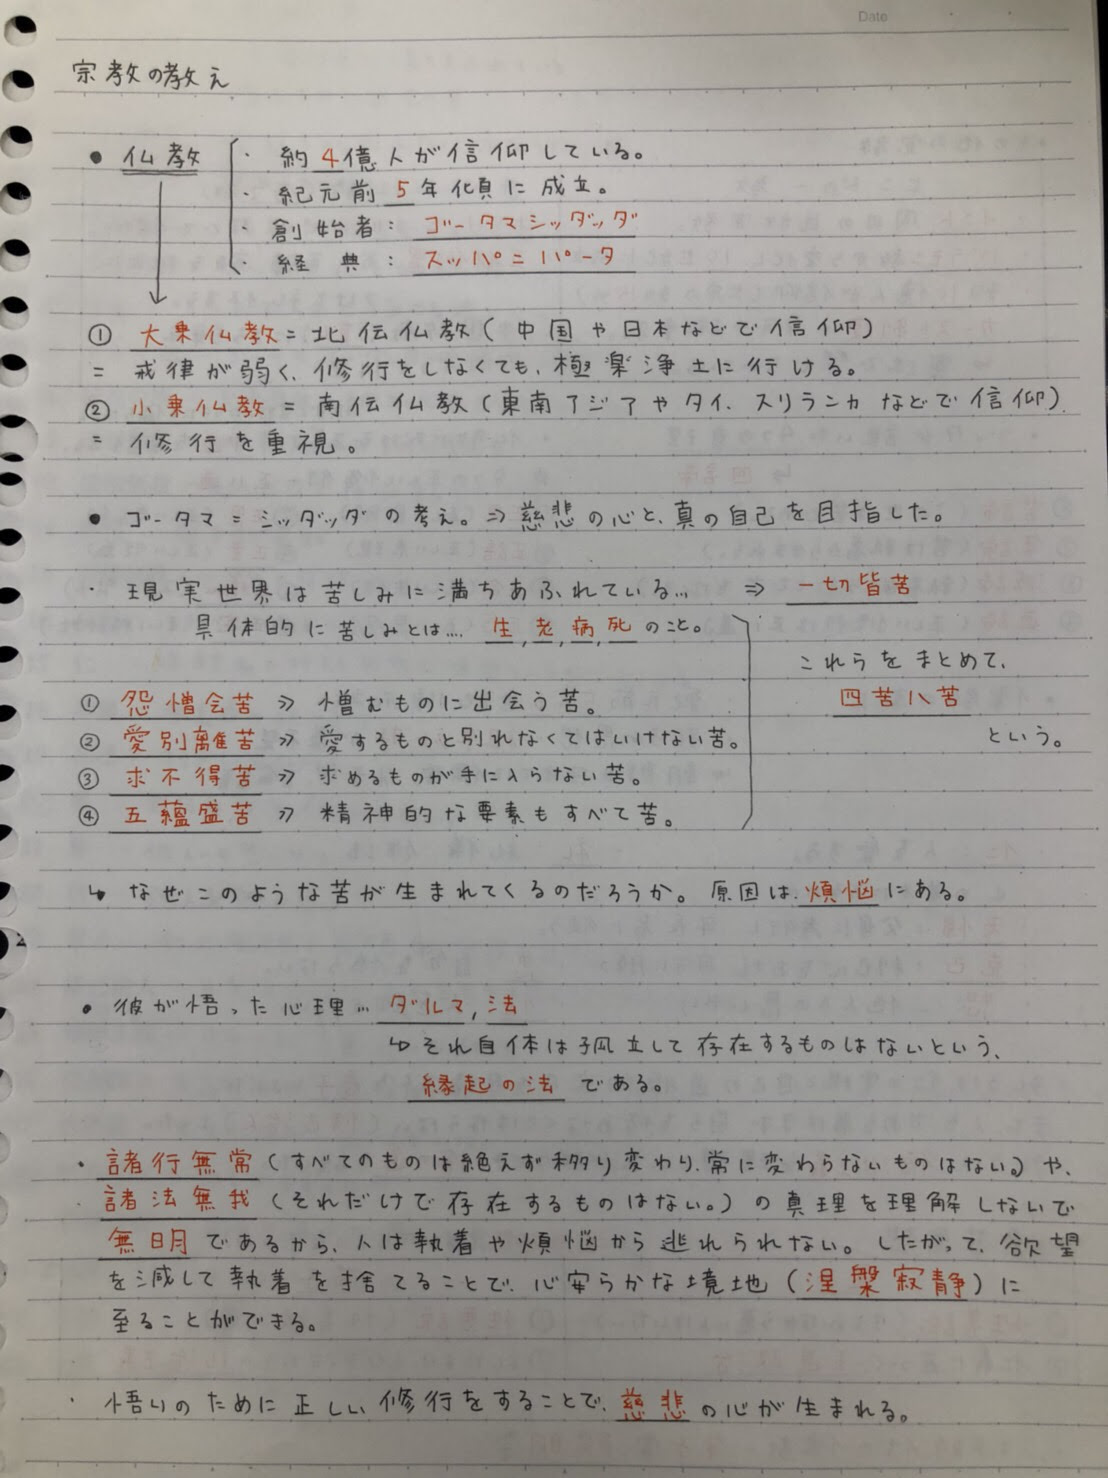 Date
宗教の教え
● 仏教 ・ 約4億人が信仰している。
・ 紀元前 5 年頃に成立。
・ 創始者: ゴータマシッダッダ
・ 経典: スッパニパータ
① 大乗仏教 = 北伝仏教 ( 中国や日本などで信仰)
= 戒律が弱く、修行をしなくても、極楽浄土に行ける。
② 小乗仏教 = 南伝仏教 (東南アジアやタイ、スリランカなどで信仰)
= 修行を重視。
● ゴータマ=シッダッダの考え。⇒ 慈悲の心と、真の自己を目指した。
・ 現実世界は苦しみに満ちあふれている… ⇒ 一切皆苦
具体的に苦しみとは…. 生,老,病,死 のこと。
これらをまとめて、
① 怨憎会苦 ⇒ 憎むものに出会う苦。
四苦八苦
② 愛別離苦 ⇒ 愛するものと別れなくてはいけない苦。
という。
③ 求不得苦 ⇒ 求めるものが手に入らない苦。
④ 五蘊盛苦 ⇒ 精神的な要素もすべて苦。
↳ なぜこのような苦が生まれてくるのだろうか。原因は、煩悩にある。
● 彼が悟った心理… ダルマ, 法
↳ それ自体は孤立して存在するものはないという、
縁起の法 である。
・ 諸行無常 (すべてのものは絶えず移り変わり、常に変わらないものはない。) や、
諸法無我 (それだけで存在するものはない。) の真理を理解しないで
無明 であるから、人は執着や煩悩から逃れられない。したがって、欲望
を減して執着を捨てることで、心安らかな境地 (涅槃寂静) に
至ることができる。
・ 悟りのために正しい修行をすることで、慈悲 の心が生まれる。